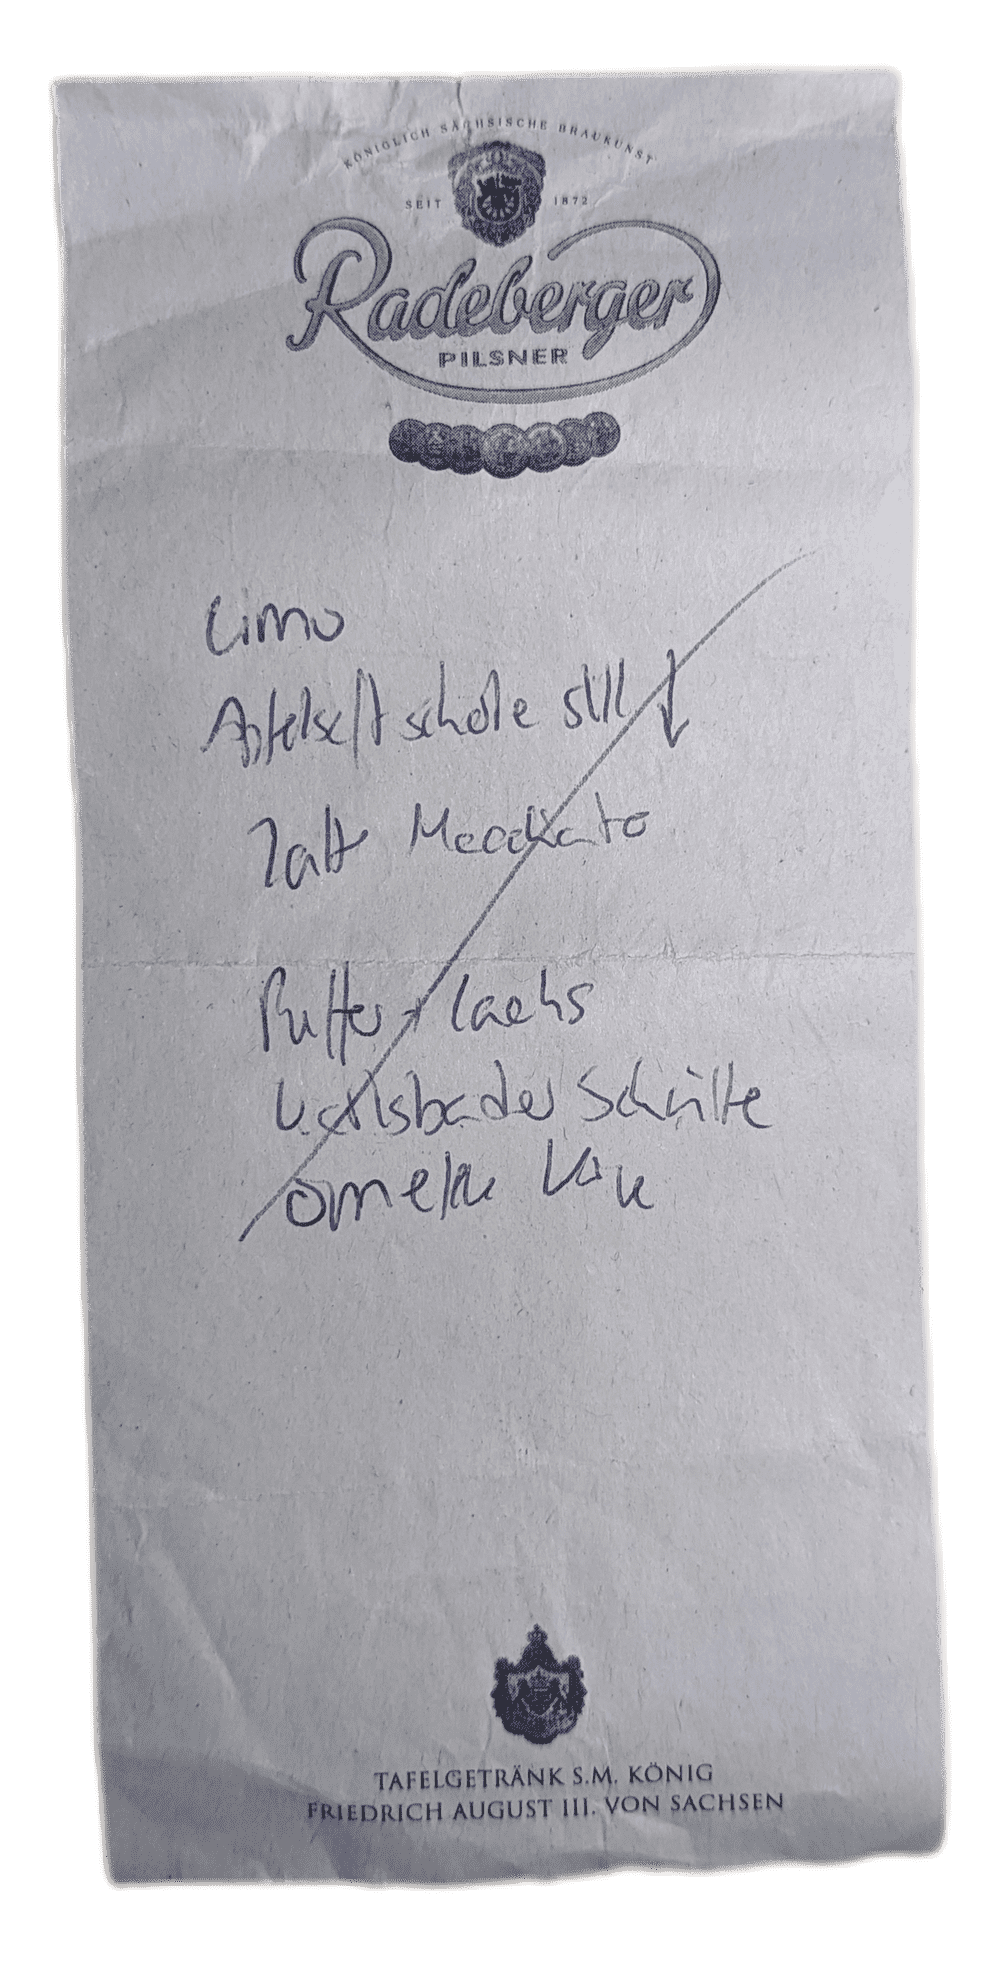 KÖNIGLICH SÄCHSISCHE BRAUKUNST
SEIT 1872
Radeberger
PILSNER
Limo
Apfelsaftschorle still ↓
Latte Macchiato
Puffer + Lachs
Karlsbader Schnitte
Omelette
TAFELGETRÄNK S.M. KÖNIG
FRIEDRICH AUGUST III. VON SACHSEN